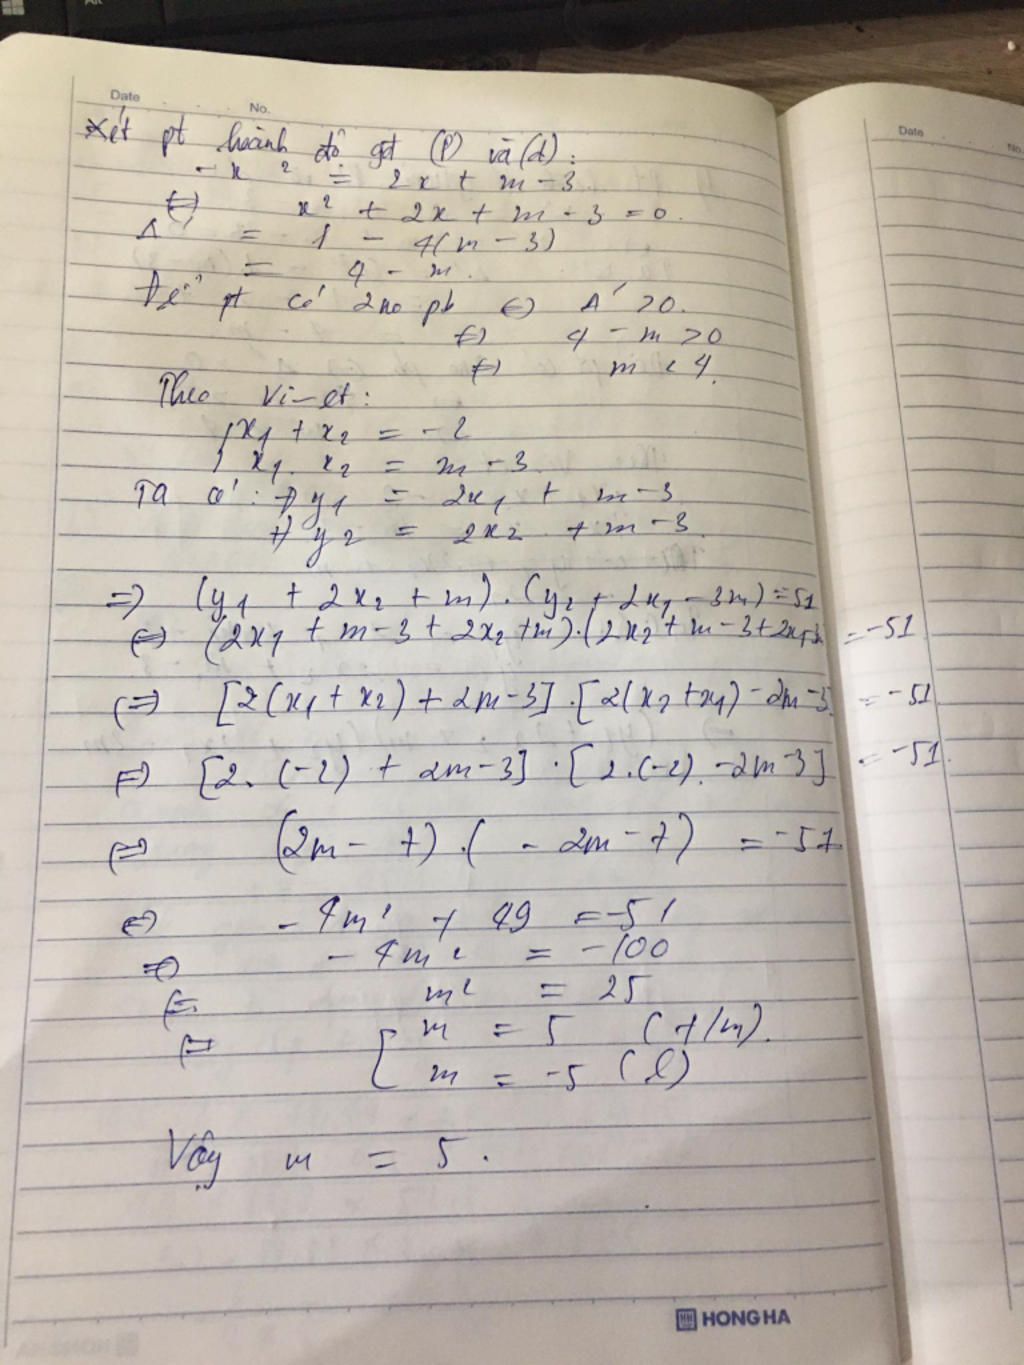 Date No.
Xét pt hoành độ gđ (P) và (d):
- x² = 2x + m - 3
⇔ x² + 2x + m - 3 = 0.
Δ' = 1 - 4(m - 3)
= 4 - m.
Để pt có 2 no pb ⇔ Δ' > 0.
⇔ 4 - m > 0
⇔ m < 4.
Theo Vi-et:
{ x₁ + x₂ = -2
x₁. x₂ = m - 3
Ta có: +) y₁ = 2x₁ + m - 3
+) y₂ = 2x₂ + m - 3
⇒ (y₁ + 2x₂ + m).(y₂ + 2x₁ - 3m) = 51
⇔ (2x₁ + m - 3 + 2x₂ + m).(2x₂ + m - 3 + 2x₁ = -51
⇔ [2(x₁ + x₂) + 2m - 3].[2(x₂ + x₁) - 2m - 3] = -51
⇔ [2.(-2) + 2m - 3].[2.(-2) - 2m - 3] = -51
⇔ (2m - 7).(- 2m - 7) = -51
⇔ - 4m² + 49 = -51
⇔ - 4m² = -100
⇔ m² = 25
⇔ [ m = 5 (t/m).
m = -5 (l)
Vậy m = 5.
HONG HA
Date
No.